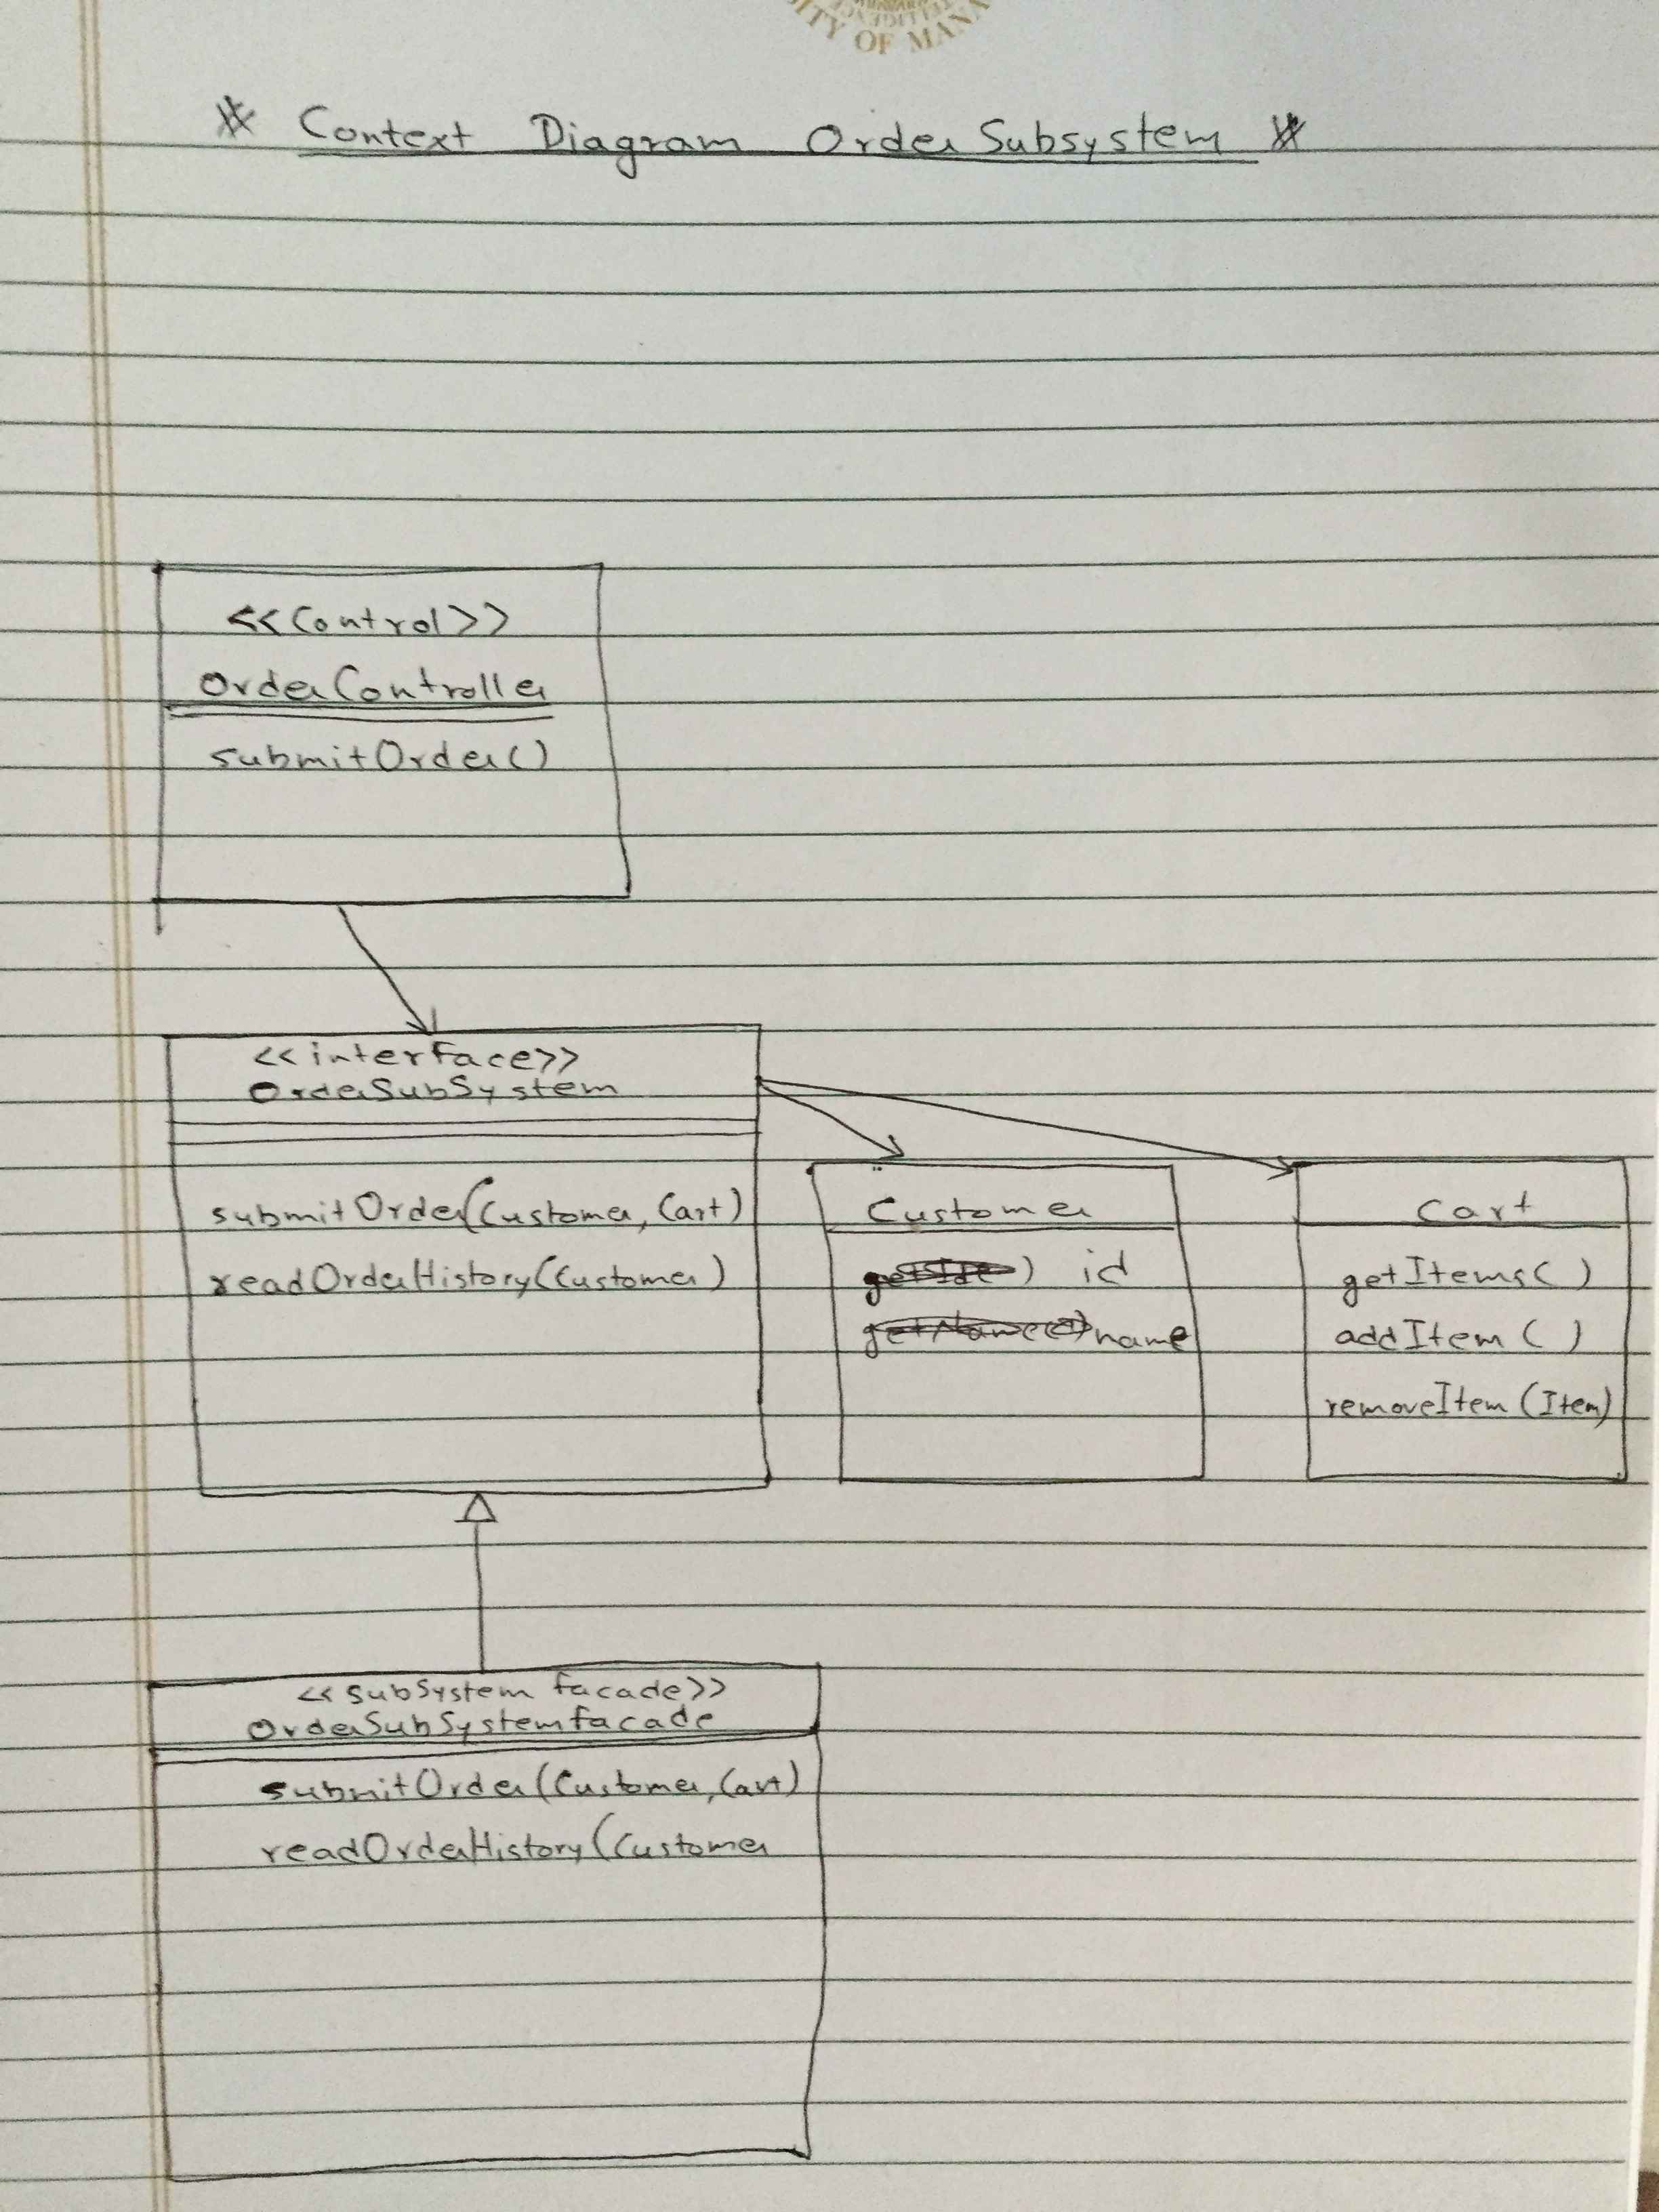 OF MANA
Context Diagram Order Subsystem
<<Control>>
OrderController
submitOrder()
<<interface>>
OrderSubSystem
submitOrder(Customer, Cart)
readOrderHistory(Customer)
Customer
id
name
Cart
getItems()
addItem()
removeItem(Item)
<<subSystem facade>>
OrderSubSystemfacade
submitOrder(Customer, Cart)
readOrderHistory(Customer